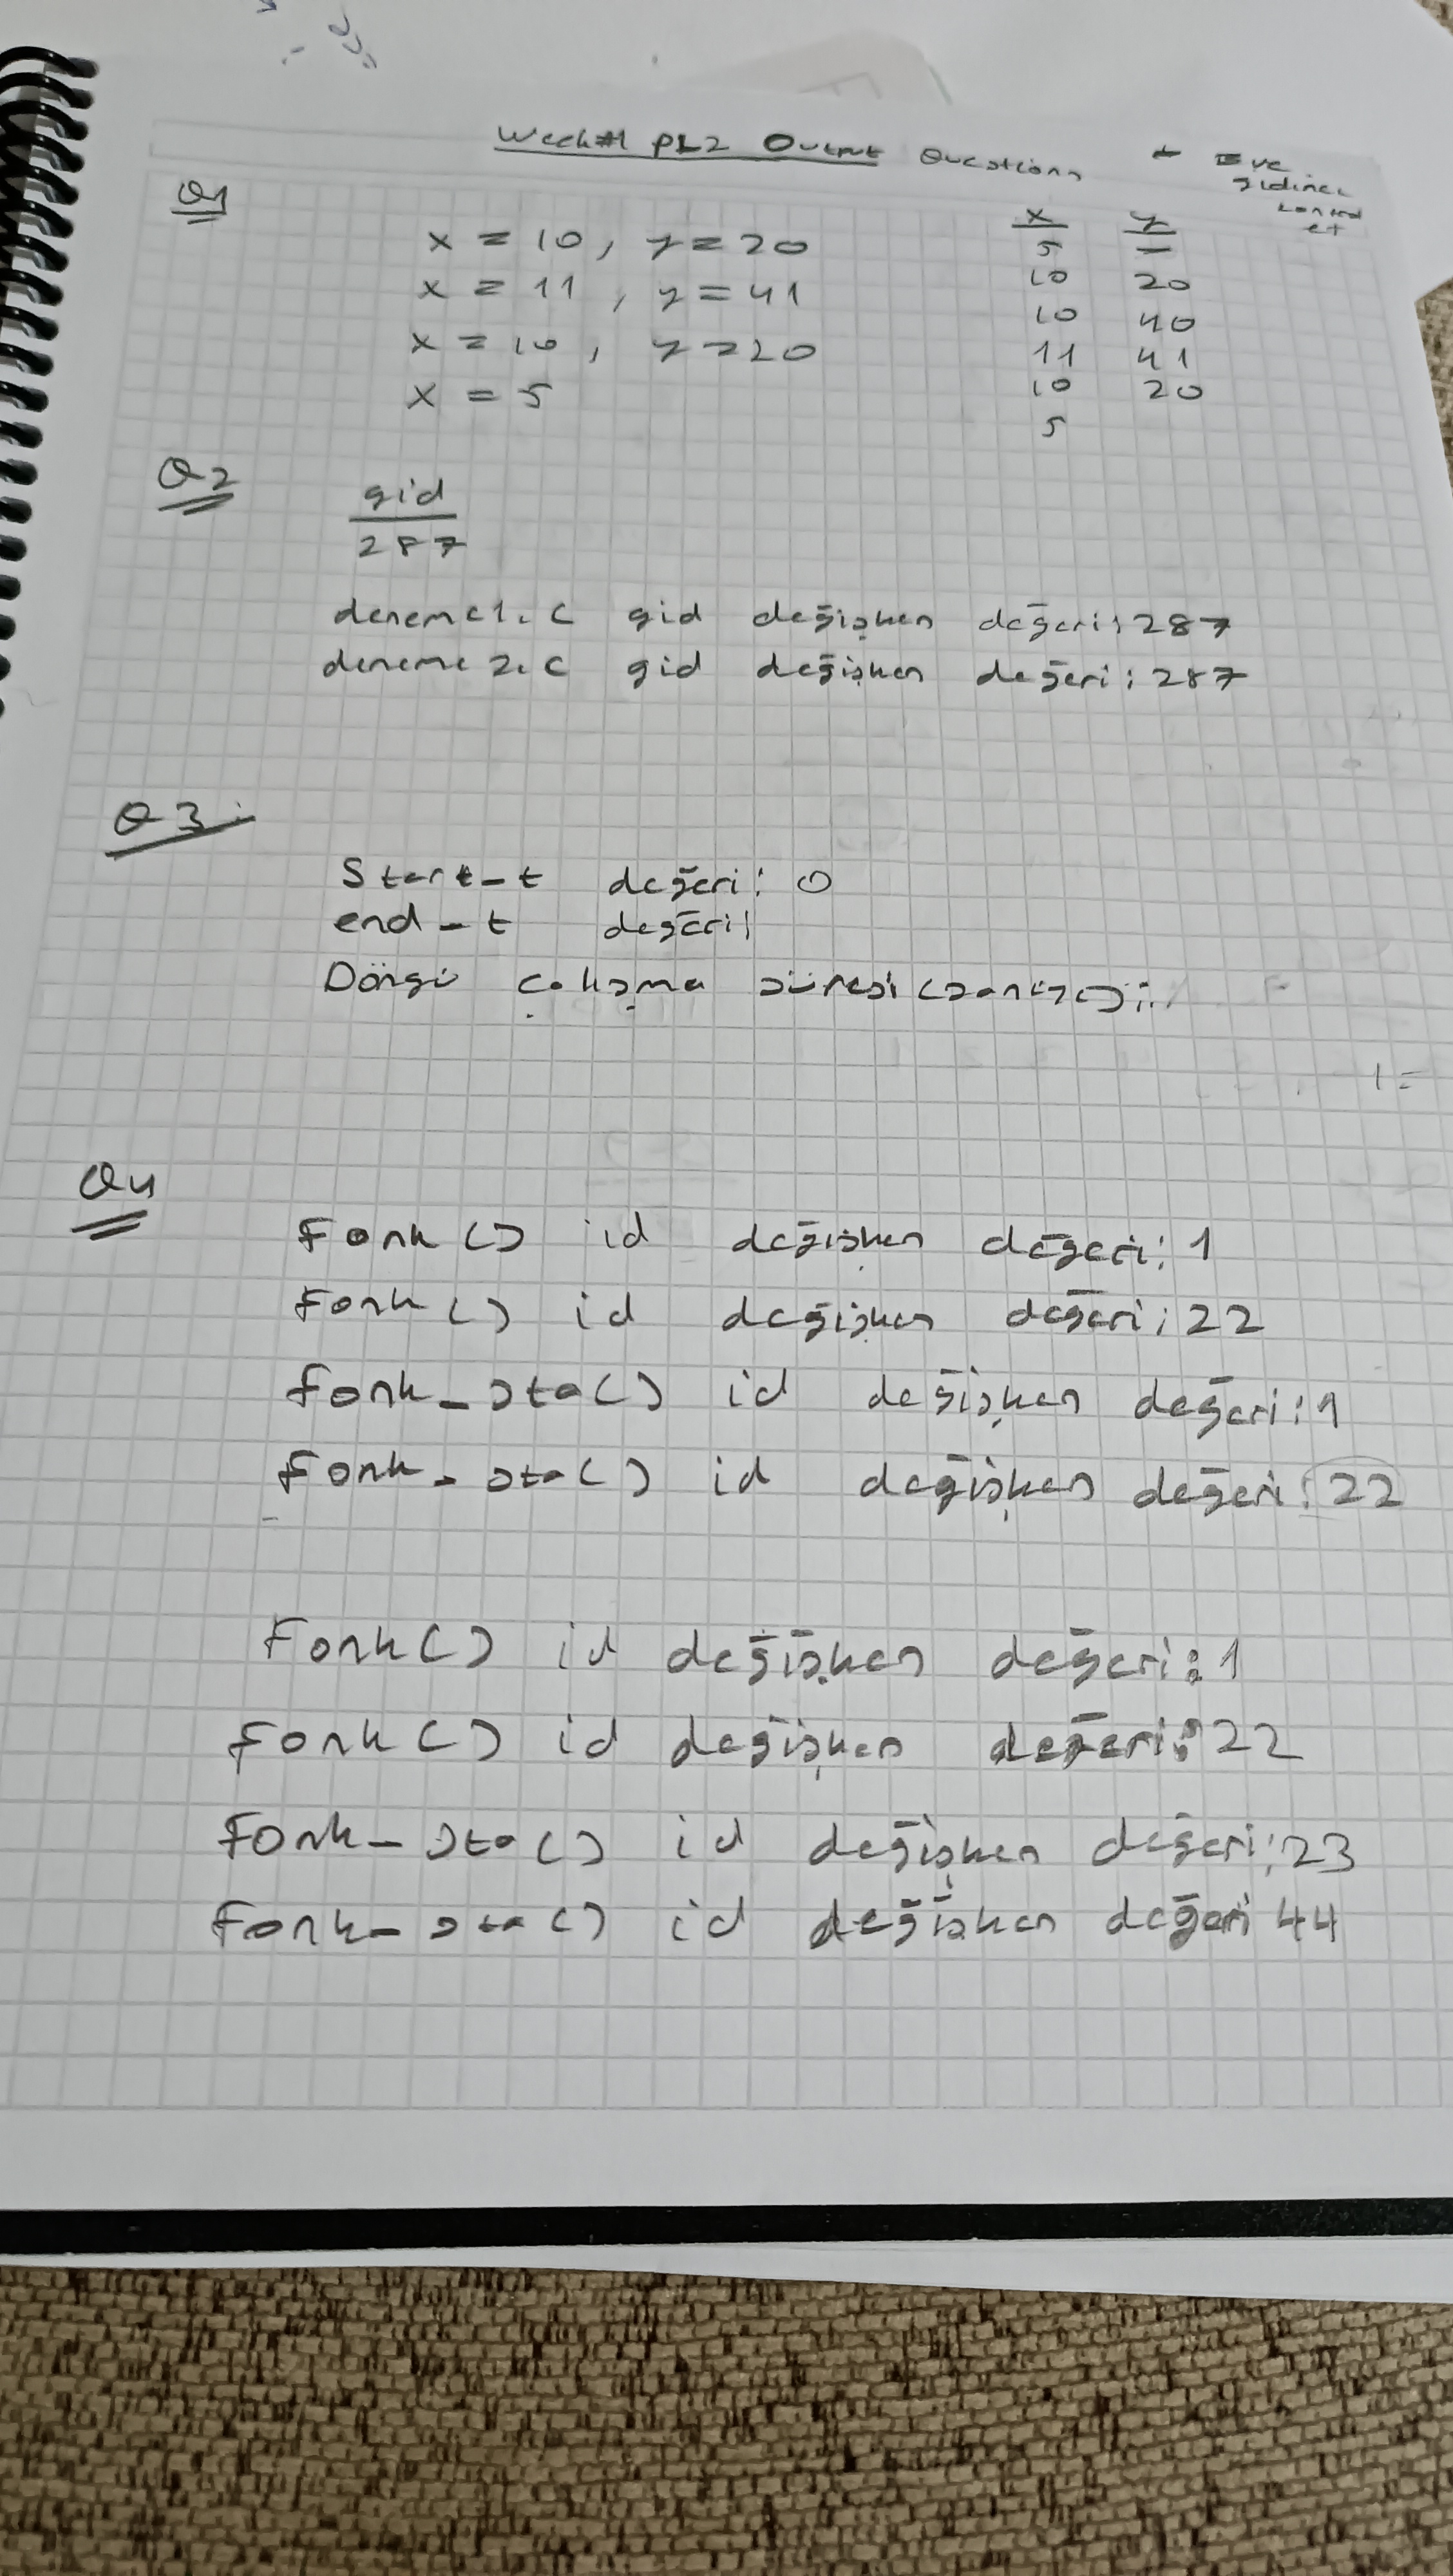 Week#1 PL2 Output Questions → Eve gidince kontrol et
Q1
x = 10, y = 20
x = 11, y = 41
x = 10, y = 20
x = 5
x y
5 —
10 20
10 40
11 41
10 20
5
Q2
gid
287
deneme1.c gid değişken değeri: 287
deneme2.c gid değişken değeri: 287
Q3
Start_t değeri: 0
end_t değeri:
Döngü çalışma süresi (saniye):
Q4
Fonk() id değişken değeri: 1
Fonk() id değişken değeri: 22
Fonk_sta() id değişken değeri: 1
Fonk_sta() id değişken değeri: 22
Fonk() id değişken değeri: 1
Fonk() id değişken değeri: 22
Fonk_sta() id değişken değeri: 23
Fonk_sta() id değişken değeri 44